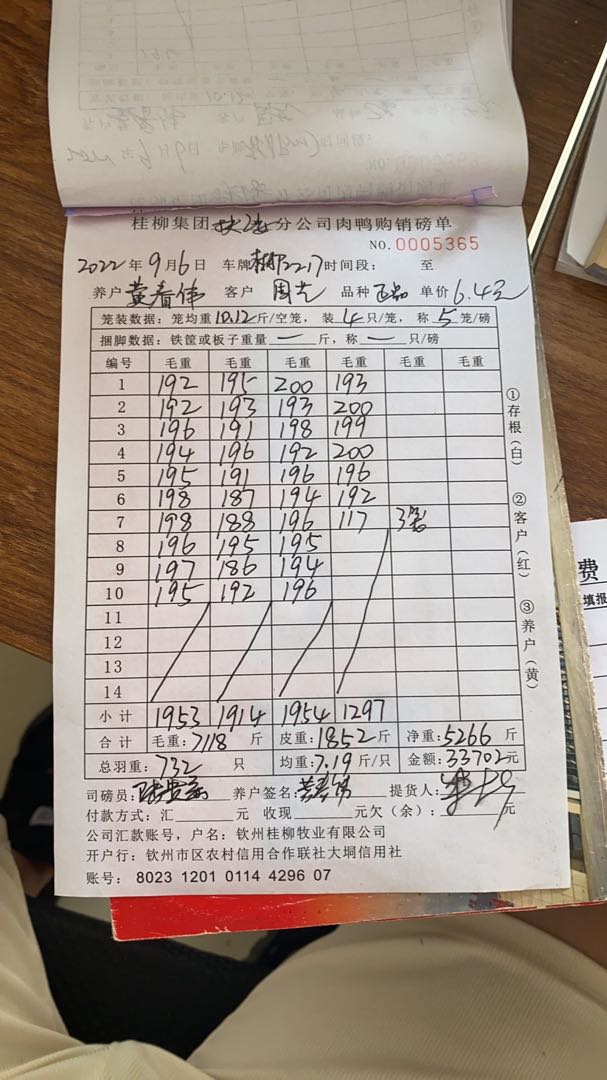 桂柳集团 分公司肉鸭购销磅单
NO.0005365
2022年9月6日 车牌 2217 时间段: 至
养户 黄春伟 客户 周 品种 正品 单价 6.4元
笼装数据: 笼均重10.12斤/空笼, 装4只/笼, 称5笼/磅
捆脚数据: 铁筐或板子重量 — 斤, 称 — 只/磅
编号 毛重 毛重 毛重 毛重 毛重 毛重
1 192 195 200 193
2 192 193 193 200
3 196 191 198 199
4 194 196 192 200
5 195 191 196 196
6 198 187 194 192
7 198 188 196 117 3笼
8 196 195 195
9 197 186 194
10 195 192 196
11
12
13
14
小计 1953 1914 1954 1297
合计 毛重:7118斤 皮重:1852斤 净重:5266斤
总羽重:732只 均重:7.19斤/只 金额:33702元
司磅员: 养户签名:黄春伟 提货人:
付款方式: 汇 元 收现 元欠(余): 元
公司汇款账号, 户名: 钦州桂柳牧业有限公司
开户行: 钦州市区农村信用合作联社大垌信用社
账号: 8023 1201 0114 4296 07
①存根(白)
②客户(红)
③养户(黄)
费
填报